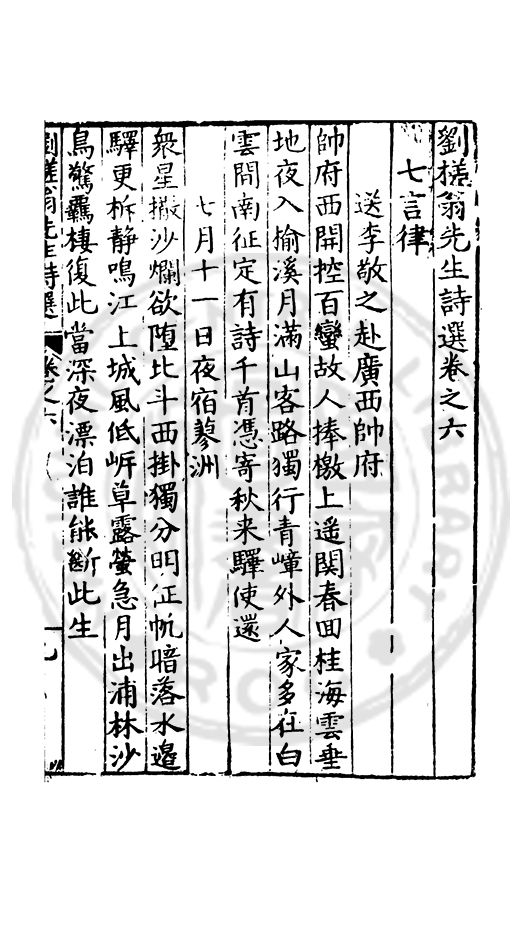 劉槎翁先生詩選卷之六
七言律
送李敬之赴廣西帥府
帥府西開控百蠻故人捧檄上遥関春回桂海雲垂
地夜入榆溪月滿山客路獨行青嶂外人家多在白
雲間南征定有詩千首憑寄秋来驛使還
七月十一日夜宿蓼洲
衆星撒沙爛欲墮比斗西掛獨分明征帆暗落水邉
驛更柝静鳴江上城風低岍草露螢急月出浦林沙
鳥驚羈棲復此當深夜漂泊誰能斷此生
劉槎翁先生詩選 卷之六